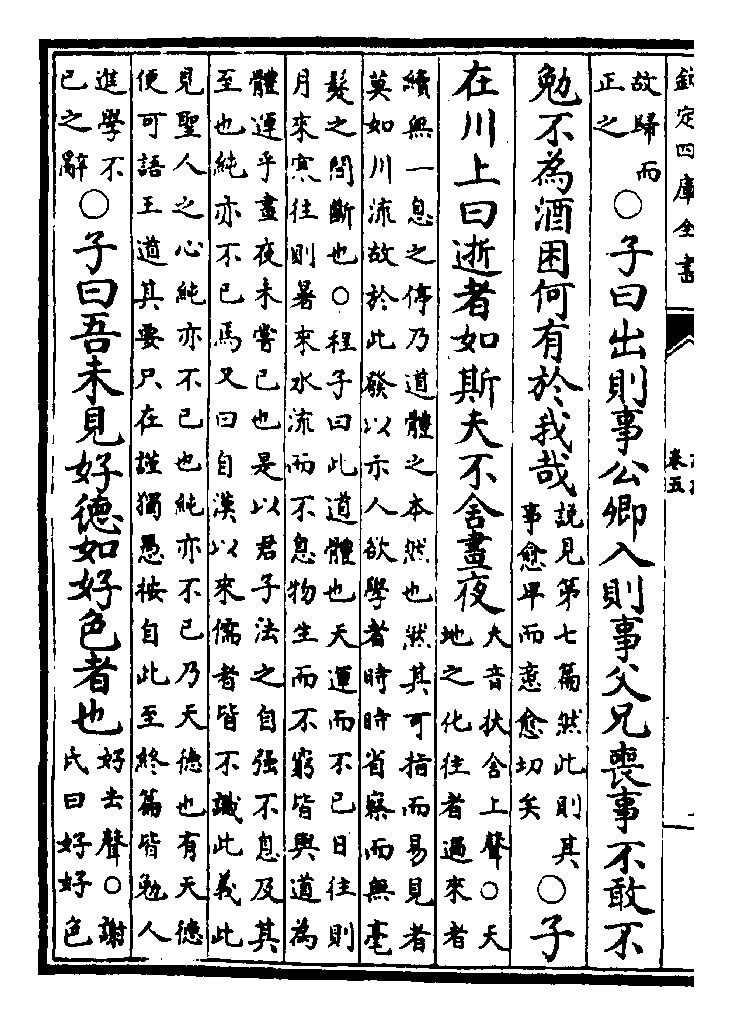 欽定四庫全書
卷五
故歸而
正之
○子曰出則事公卿入則事父兄喪事不敢不
勉不為酒困何有於我哉
說見第七篇然此則其
事愈卑而意愈切矣
○子
在川上曰逝者如斯夫不舍晝夜
夫音扶舍上聲○天
地之化往者過來者
續無一息之停乃道體之本然也然其可指而易見者
莫如川流故於此發以示人欲學者時時省察而無毫
髮之間斷也○程子曰此道體也天運而不已日往則
月來寒往則暑來水流而不息物生而不窮皆與道為
體運乎晝夜未嘗已也是以君子法之自强不息及其
至也純亦不已焉又曰自漢以來儒者皆不識此義此
見聖人之心純亦不已也純亦不已乃天德也有天德
便可語王道其要只在謹獨愚按自此至終篇皆勉人
進學不
已之辭
○子曰吾未見好德如好色者也
好去聲○謝
氏曰好好色